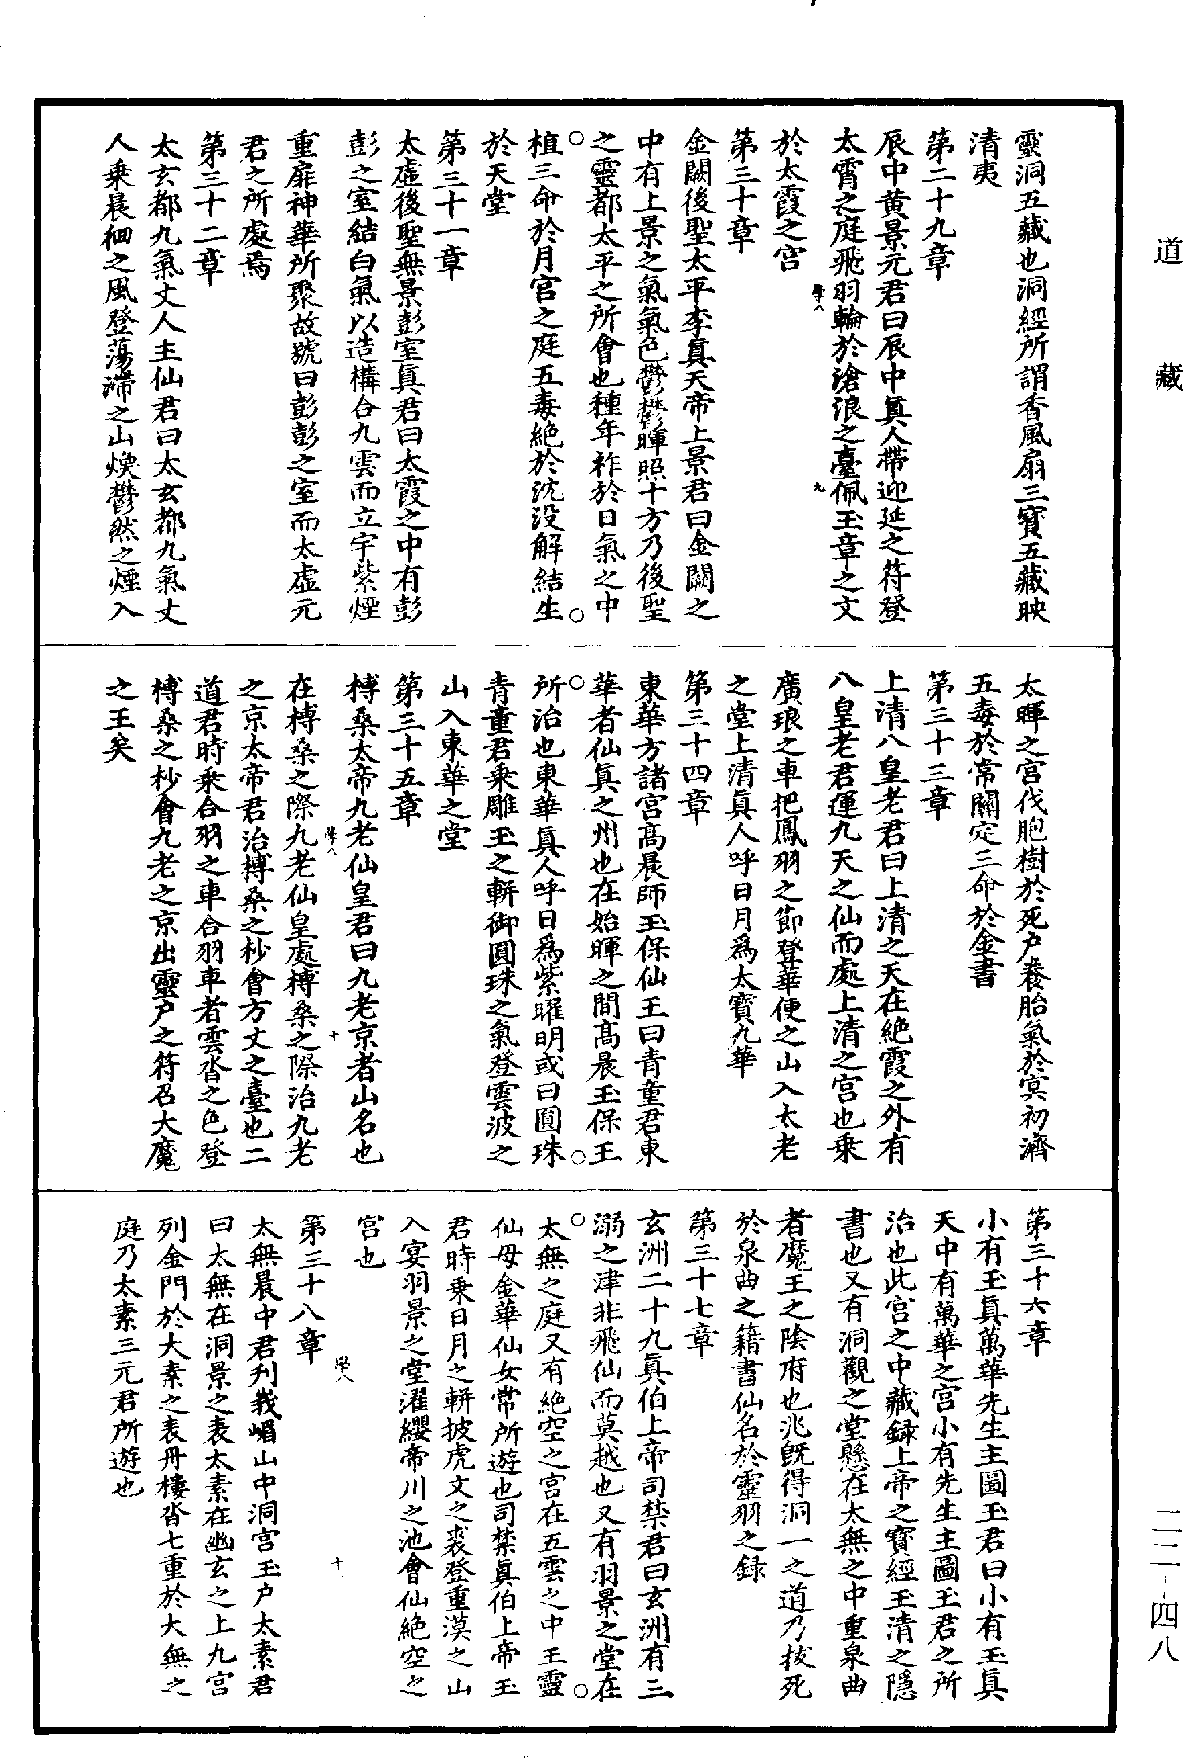 道藏
靈洞五藏也洞經所謂香風扇三寶五藏映
清夷
第二十九章
辰中黄景元君曰辰中真人帶迎延之符登
太霄之庭飛羽輪於滄浪之臺佩玉章之文
於太霞之宫
第三十章
金闕後聖太平李真天帝上景君曰金闕之
中有上景之氣氣色鬱鬱暉照十方乃後聖
之靈都太平之所會也種年祚於日氣之中
植三命於月宫之庭五毒絶於沈没解結生
於天堂
第三十一章
太虚後聖無景彭室真君曰太霞之中有彭
彭之室結白氣以造構合九雲而立宇紫煙
重扉神華所聚故號曰彭彭之室而太虚元
君之所處焉
第三十二章
太玄都九氣丈人主仙君曰太玄都九氣丈
人乘晨徊之風登蕩滯之山煥鬱然之煙入
太暉之宫伐胞樹於死户養胎氣於冥初濟
五毒於常關定三命於金書
第三十三章
上清八皇老君曰上清之天在絶霞之外有
八皇老君運九天之仙而處上清之宫也乘
廣琅之車把鳳羽之節登華便之山入太老
之堂上清真人呼日月爲太寶九華
第三十四章
東華方諸宫高晨師玉保仙王曰青童君東
華者仙真之州也在始暉之間高晨玉保王
所治也東華真人呼日爲紫曜明或曰圓珠
青童君乘雕玉之軿御圓珠之氣登雲波之
山入東華之堂
第三十五章
榑桑太帝九老仙皇君曰九老京者山名也
在榑桑之際九老仙皇處榑桑之際治九老
之京太帝君治榑桑之杪會方丈之臺也二
道君時乘合羽之車合羽車者雲沓之色登
榑桑之杪會九老之京出靈户之符召大魔
之王矣
第三十六章
小有玉真萬華先生主圖玉君曰小有玉真
天中有萬華之宫小有先生主圖玉君之所
治也此宫之中藏録上帝之寶經玉清之隱
書也又有洞觀之堂懸在太無之中重泉曲
者魔王之陰府也兆既得洞一之道乃拔死
於泉曲之籍書仙名於靈羽之録
第三十七章
玄洲二十九真伯上帝司禁君曰玄洲有三
溺之津非飛仙而莫越也又有羽景之堂在
太無之庭又有絶空之宫在五雲之中王靈
仙母金華仙女常所遊也司禁真伯上帝玉
君時乘日月之軿披虎文之裘登重漠之山
入宴羽景之堂濯纓帝川之池會仙絶空之
宫也
第三十八章
太無晨中君刋峩嵋山中洞宫玉户太素君
曰太無在洞景之表太素在幽玄之上九宫
列金門於大素之表丹樓沓七重於大無之
庭乃太素三元君所遊也
二二-四八